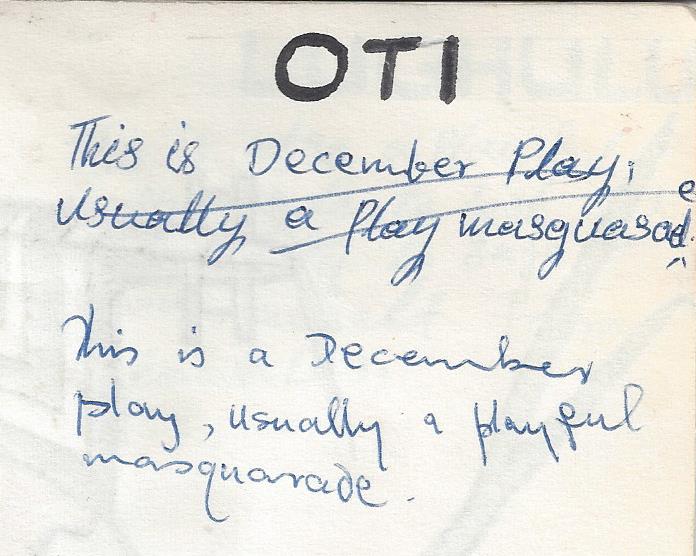 OTI
This is December Play;
Usually a Play masquasade
This is a December
play, usually a playful
masquarade.